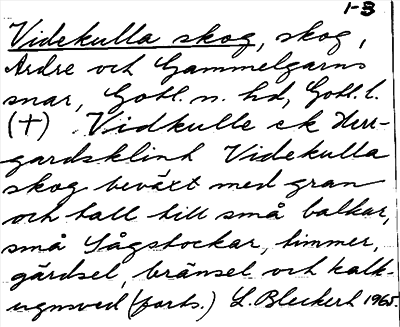 1-3
Videkulla skog, skog,
Ardre och Gammelgarns
snar, Gotl. n. hd, Gotl. l.
(+) Vidkulle ek Herr-
gardsklint Videkulla
skog beväxt med gran
och tall till små balkar,
små Sågstockar, timmer,
gärdsel, bränsel och kalk-
ugnsved (forts.) L. Bleckert 1965.